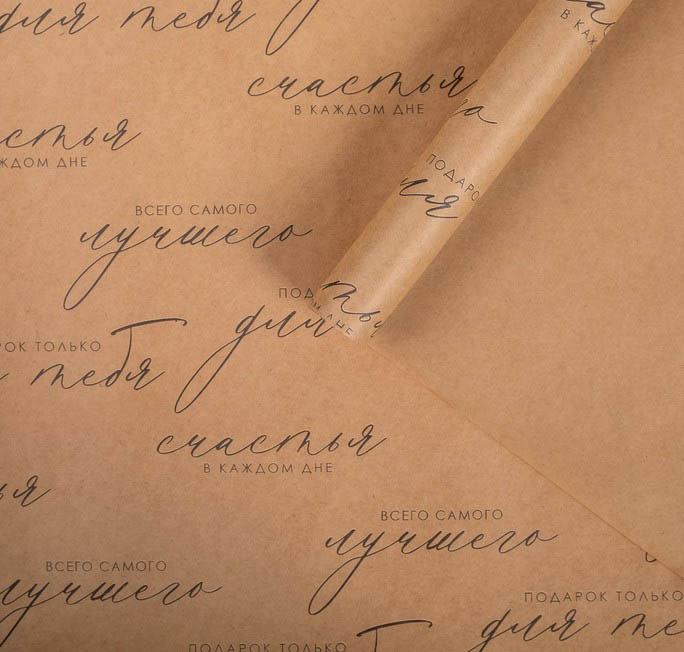 для тебя
счастья
В КАЖДОМ ДНЕ
В КАЖ
счастья
КАЖДОМ ДНЕ
ПОДАРО
ля
ВСЕГО САМОГО
лучшего
ПОД
для
ДНЕ
ПОДАРОК ТОЛЬКО
тебя
счастья
В КАЖДОМ ДНЕ
ья
ВСЕГО САМОГО
лучшего
ВСЕГО САМОГО
лучшего
ПОДАРОК ТОЛЬКО
для те
ПОДАРОК ТОЛЬКО